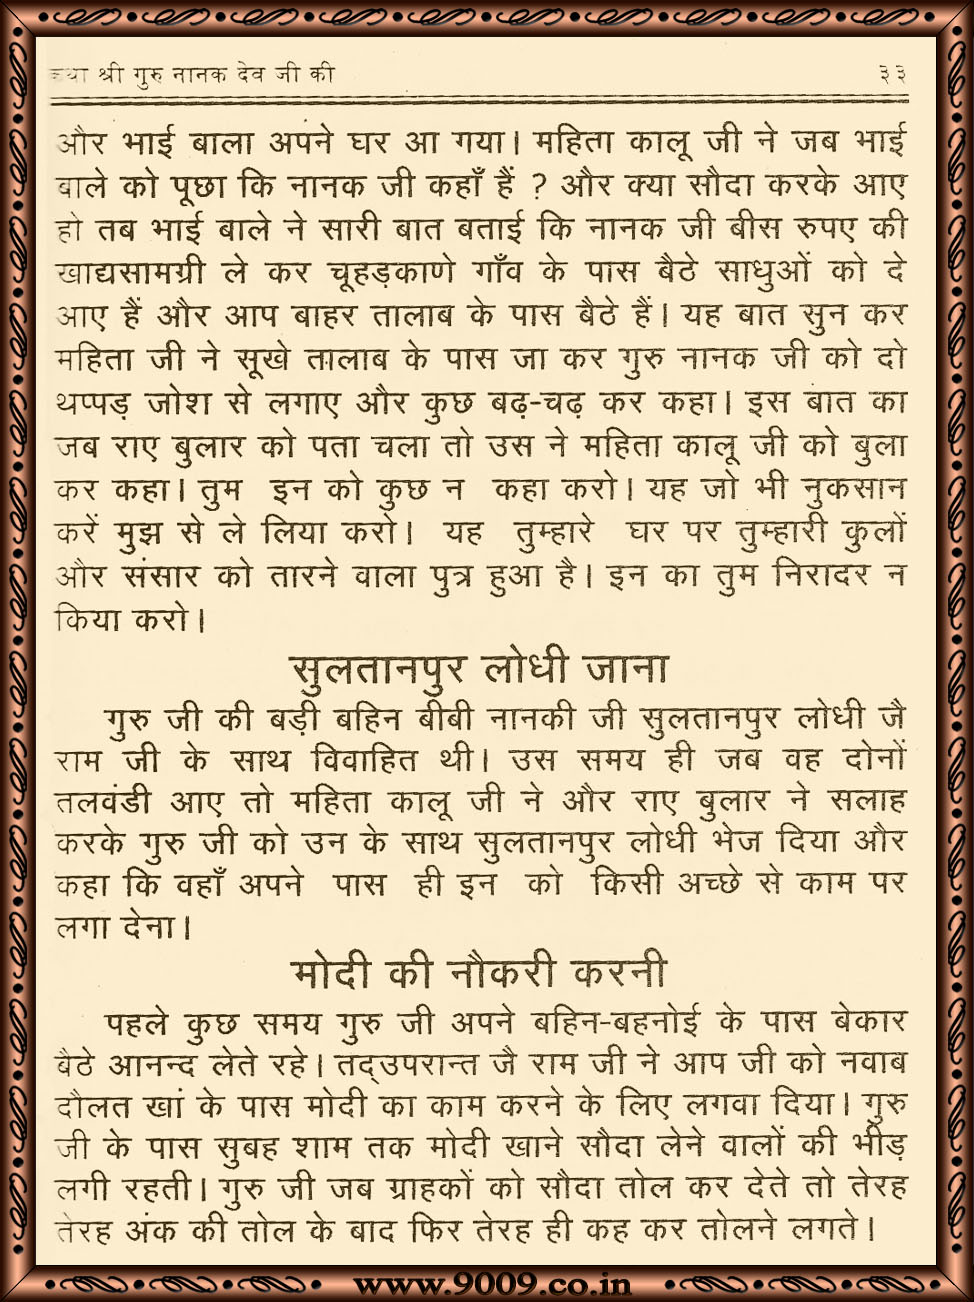 कथा श्री गुरु नानक देव जी की ३३
और भाई बाला अपने घर आ गया। महिता कालू जी ने जब भाई
बाले को पूछा कि नानक जी कहाँ हैं ? और क्या सौदा करके आए
हो तब भाई बाले ने सारी बात बताई कि नानक जी बीस रुपए की
खाद्यसामग्री ले कर चूहड़काणे गाँव के पास बैठे साधुओं को दे
आए हैं और आप बाहर तालाब के पास बैठे हैं। यह बात सुन कर
महिता जी ने सूखे तालाब के पास जा कर गुरु नानक जी को दो
थप्पड़ जोश से लगाए और कुछ बढ़-चढ़ कर कहा। इस बात का
जब राए बुलार को पता चला तो उस ने महिता कालू जी को बुला
कर कहा। तुम इन को कुछ न कहा करो। यह जो भी नुकसान
करें मुझ से ले लिया करो। यह तुम्हारे घर पर तुम्हारी कुलों
और संसार को तारने वाला पुत्र हुआ है। इन का तुम निरादर न
किया करो।
सुलतानपुर लोधी जाना
गुरु जी की बड़ी बहिन बीबी नानकी जी सुलतानपुर लोधी जै
राम जी के साथ विवाहित थी। उस समय ही जब वह दोनों
तलवंडी आए तो महिता कालू जी ने और राए बुलार ने सलाह
करके गुरु जी को उन के साथ सुलतानपुर लोधी भेज दिया और
कहा कि वहाँ अपने पास ही इन को किसी अच्छे से काम पर
लगा देना।
मोदी की नौकरी करनी
पहले कुछ समय गुरु जी अपने बहिन-बहनोई के पास बेकार
बैठे आनन्द लेते रहे। तद्उपरान्त जै राम जी ने आप जी को नवाब
दौलत खां के पास मोदी का काम करने के लिए लगवा दिया। गुरु
जी के पास सुबह शाम तक मोदी खाने सौदा लेने वालों की भीड़
लगी रहती। गुरु जी जब ग्राहकों को सौदा तोल कर देते तो तेरह
तेरह अंक की तोल के बाद फिर तेरह ही कह कर तोलने लगते।
www.9009.co.in